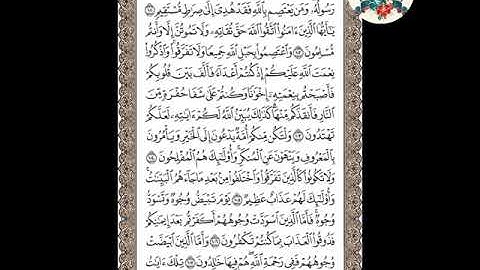 رَسُولُهُۥ وَمَن يَعْتَصِم بِٱللَّهِ فَقَدْ هُدِىَ إِلَىٰ صِرَٰطٍ مُّسْتَقِيمٍ ١٠١
يَٰٓأَيُّهَا ٱلَّذِينَ ءَامَنُوا۟ ٱتَّقُوا۟ ٱللَّهَ حَقَّ تُقَاتِهِۦ وَلَا تَمُوتُنَّ إِلَّا وَأَنتُم
مُّسْلِمُونَ ١٠٢ وَٱعْتَصِمُوا۟ بِحَبْلِ ٱللَّهِ جَمِيعًا وَلَا تَفَرَّقُوا۟ وَٱذْكُرُوا۟
نِعْمَتَ ٱللَّهِ عَلَيْكُمْ إِذْ كُنتُمْ أَعْدَآءً فَأَلَّفَ بَيْنَ قُلُوبِكُمْ
فَأَصْبَحْتُم بِنِعْمَتِهِۦٓ إِخْوَٰنًا وَكُنتُمْ عَلَىٰ شَفَا حُفْرَةٍ مِّنَ
ٱلنَّارِ فَأَنقَذَكُم مِّنْهَا كَذَٰلِكَ يُبَيِّنُ ٱللَّهُ لَكُمْ ءَايَٰتِهِۦ لَعَلَّكُمْ
تَهْتَدُونَ ١٠٣ وَلْتَكُن مِّنكُمْ أُمَّةٌ يَدْعُونَ إِلَى ٱلْخَيْرِ وَيَأْمُرُونَ
بِٱلْمَعْرُوفِ وَيَنْهَوْنَ عَنِ ٱلْمُنكَرِ وَأُو۟لَٰٓئِكَ هُمُ ٱلْمُفْلِحُونَ ١٠٤
وَلَا تَكُونُوا۟ كَٱلَّذِينَ تَفَرَّقُوا۟ وَٱخْتَلَفُوا۟ مِنۢ بَعْدِ مَا جَآءَهُمُ ٱلْبَيِّنَٰتُ
وَأُو۟لَٰٓئِكَ لَهُمْ عَذَابٌ عَظِيمٌ ١٠٥ يَوْمَ تَبْيَضُّ وُجُوهٌ وَتَسْوَدُّ
وُجُوهٌ فَأَمَّا ٱلَّذِينَ ٱسْوَدَّتْ وُجُوهُهُمْ أَكَفَرْتُم بَعْدَ إِيمَٰنِكُمْ
فَذُوقُوا۟ ٱلْعَذَابَ بِمَا كُنتُمْ تَكْفُرُونَ ١٠٦ وَأَمَّا ٱلَّذِينَ ٱبْيَضَّتْ
وُجُوهُهُمْ فَفِى رَحْمَةِ ٱللَّهِ هُمْ فِيهَا خَٰلِدُونَ ١٠٧ تِلْكَ ءَايَٰتُ